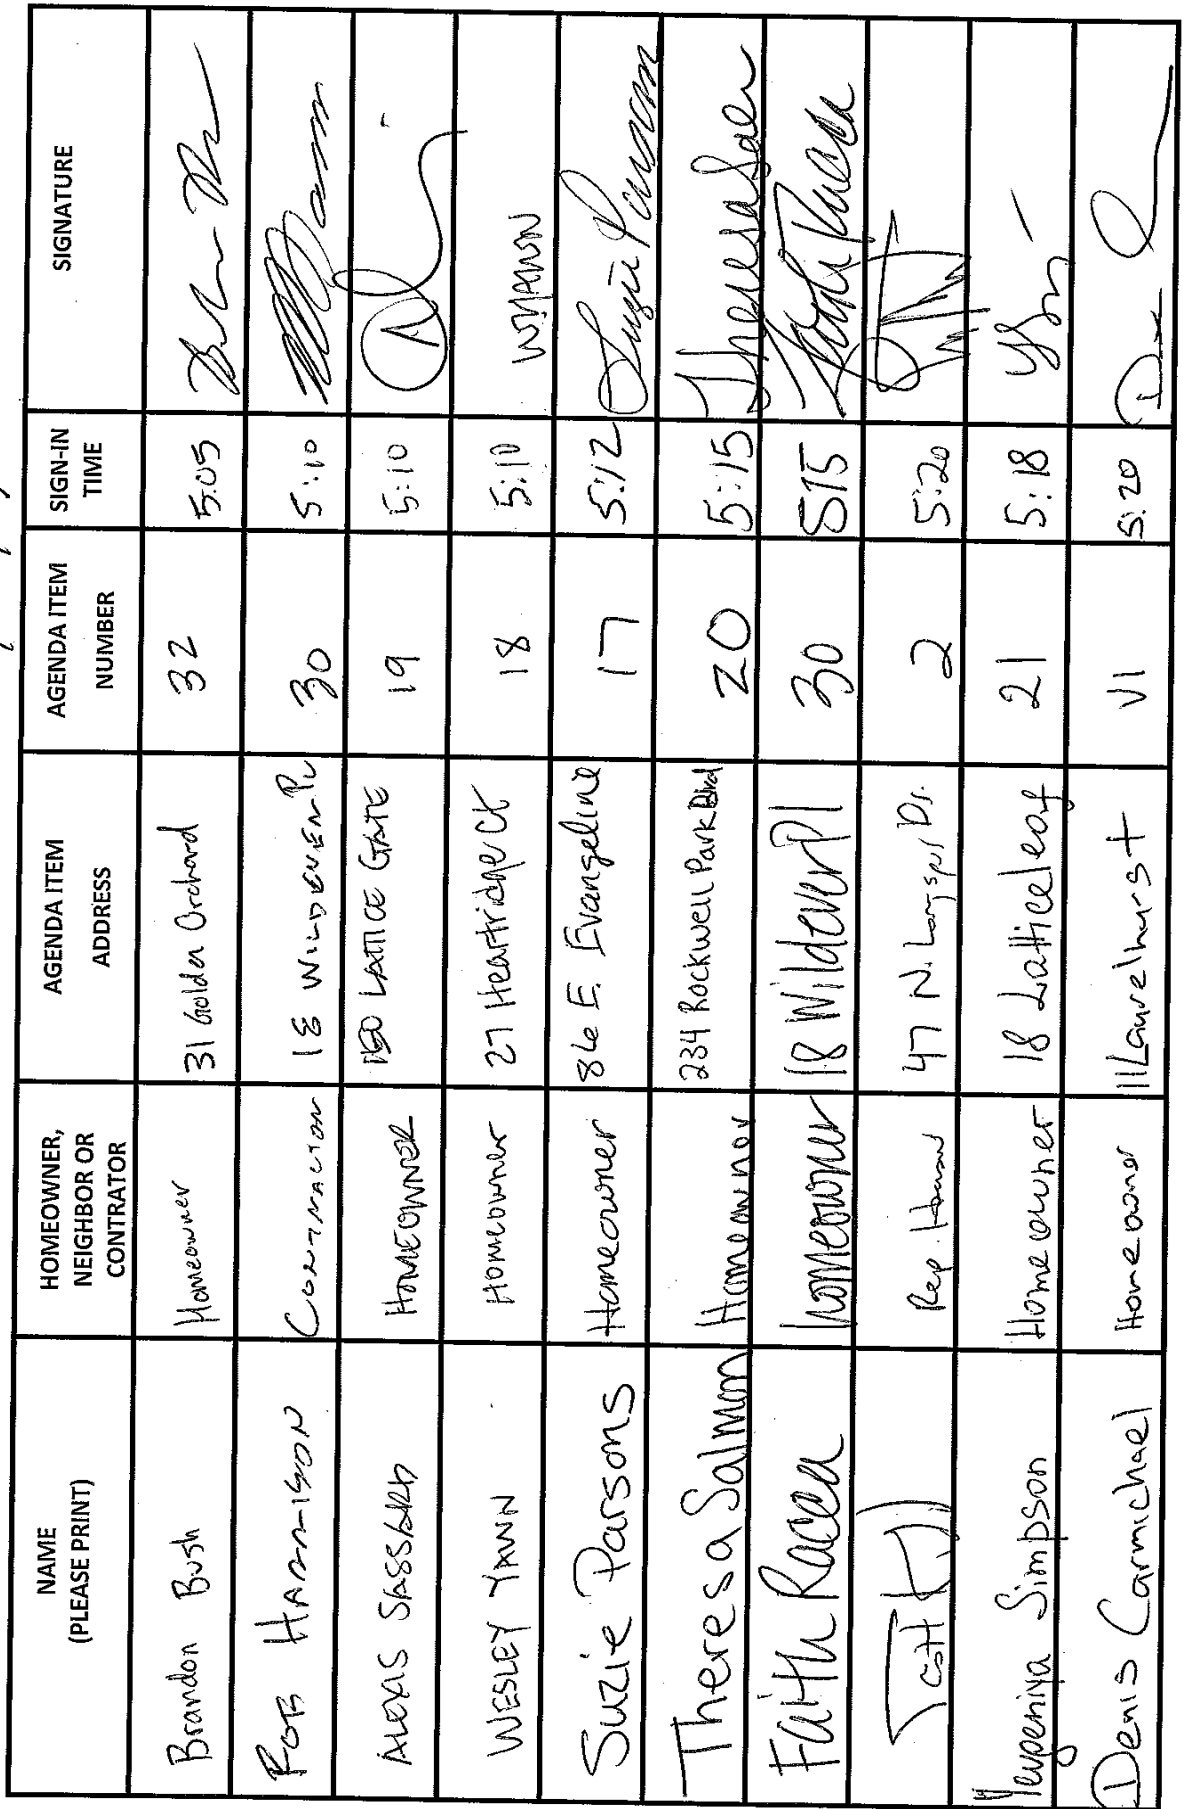 NAME (PLEASE PRINT) HOMEOWNER, NEIGHBOR OR CONTRATOR AGENDA ITEM ADDRESS AGENDA ITEM NUMBER SIGN-IN TIME SIGNATURE
Brandon Bush Homeowner 31 Golden Orchard 32 5:05
ROB HARRISON CONTRACTOR 18 WILDEVER PL 30 5:10
ALEXIS Homeowner LATTICE GATE 19 5:10
WESLEY YAWN Homeowner 27 Heartridge Ct 18 5:10 WYAWN
Suzie Parsons Homeowner 86 E. Evangeline 17 5:12 Suzie Parsons
Theresa Salmon Homeowner 234 Rockwell Park Blvd 20 5:15 Theresa
Faith Racca homeowner 18 Wildever Pl 30 515 Faith Racca
Rep. 47 N. Longspur Dr. 2 5:20
Yevgeniya Simpson Homeowner 18 Latticeleaf 21 5:18
Denis Carmichael Homeowner 11 Laurelhurst VI 5:20